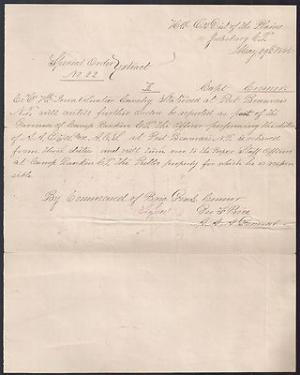 Hd Qrs Dist of the Plains
Julesburg C.T.
May 29th 186
Special Orders Extract
No. 22
II Capt.
Co "C" 7th Iowa Cavalry Stationed at Post Beauvais
N.T. will until further orders be reported as part of the
Garrison of Camp Rankin C.T. The Officer performing the duties
of A.A.Q.M. and A.C.S. at Post Beauvais, N.T. is relieved
from those duties and will turn over to the proper Staff Officers
at Camp Rankin C.T. the Public property for which he is respon
sible.
By Command of Brig. Genl. Connor
Signed Geo. F. Price
A. A. A. General